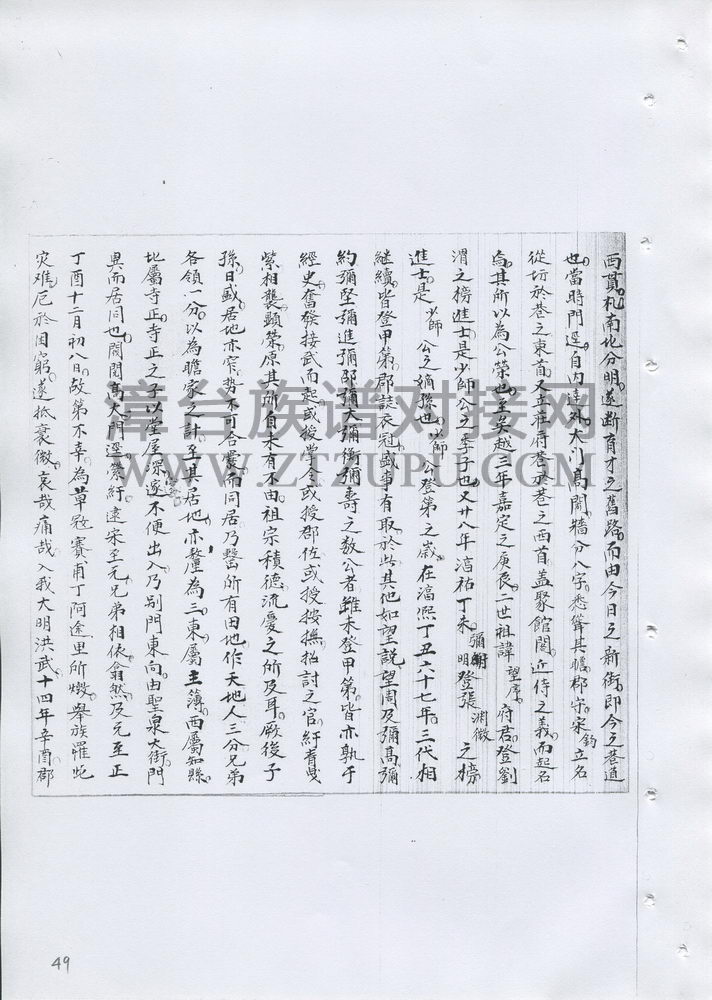 西貫札南北分明遂断育才之舊路而由今日之新街即今之巷道
也當時門逕自内達外大門高闊牆分八字悉聳其檐郡守宋鈞立名
從坊於巷之東首又立莊府巷於巷之西首蓋聚館閣近侍之義而起名
焉其所以為公榮也至吳越三年嘉定之庚辰一世祖諱望序府君登劉
渭之榜進士是少師公之季子也又廿八年淳祐丁未彌明登張淵微之榜
進士是少師公之彌孫也少師公登第之歲在淳熙丁丑六十七年三代相
繼續皆登甲第郡誌衣冠盛事有取於此其他如望説望周及彌高彌
約彌堅彌進彌邵彌大彌衡彌壽之数公者雖未登甲第皆亦孰于
經史奮發接武而起或授學令或授郡佐或授按撫招討之官紆青曵
紫相襲顯榮原其所自未有不由祖宗積德流慶之所及耳厥後子
孫日盛居地亦窄勢不可合爨而同居乃罄所有田地作天地人三分兄弟
各領一分以為贍家之計至其居地亦釐為三東屬主簿西屬知縣
地屬寺正寺正之子以堂屋深邃不便出入乃别門東向由聖泉大街門
異而居同也閥閱高大門逕縈紆遠宋至元兄弟相依翕然及元至正
丁酉十二月初八日故第不幸為草敘賽甫丁阿途里所燬舉族罹此
灾难厄於困窮遂抵衰微哀哉痛哉入我大明洪武十四年辛酉郡
漳台族谱对接网
WWW.ZTZUPU.COM
49